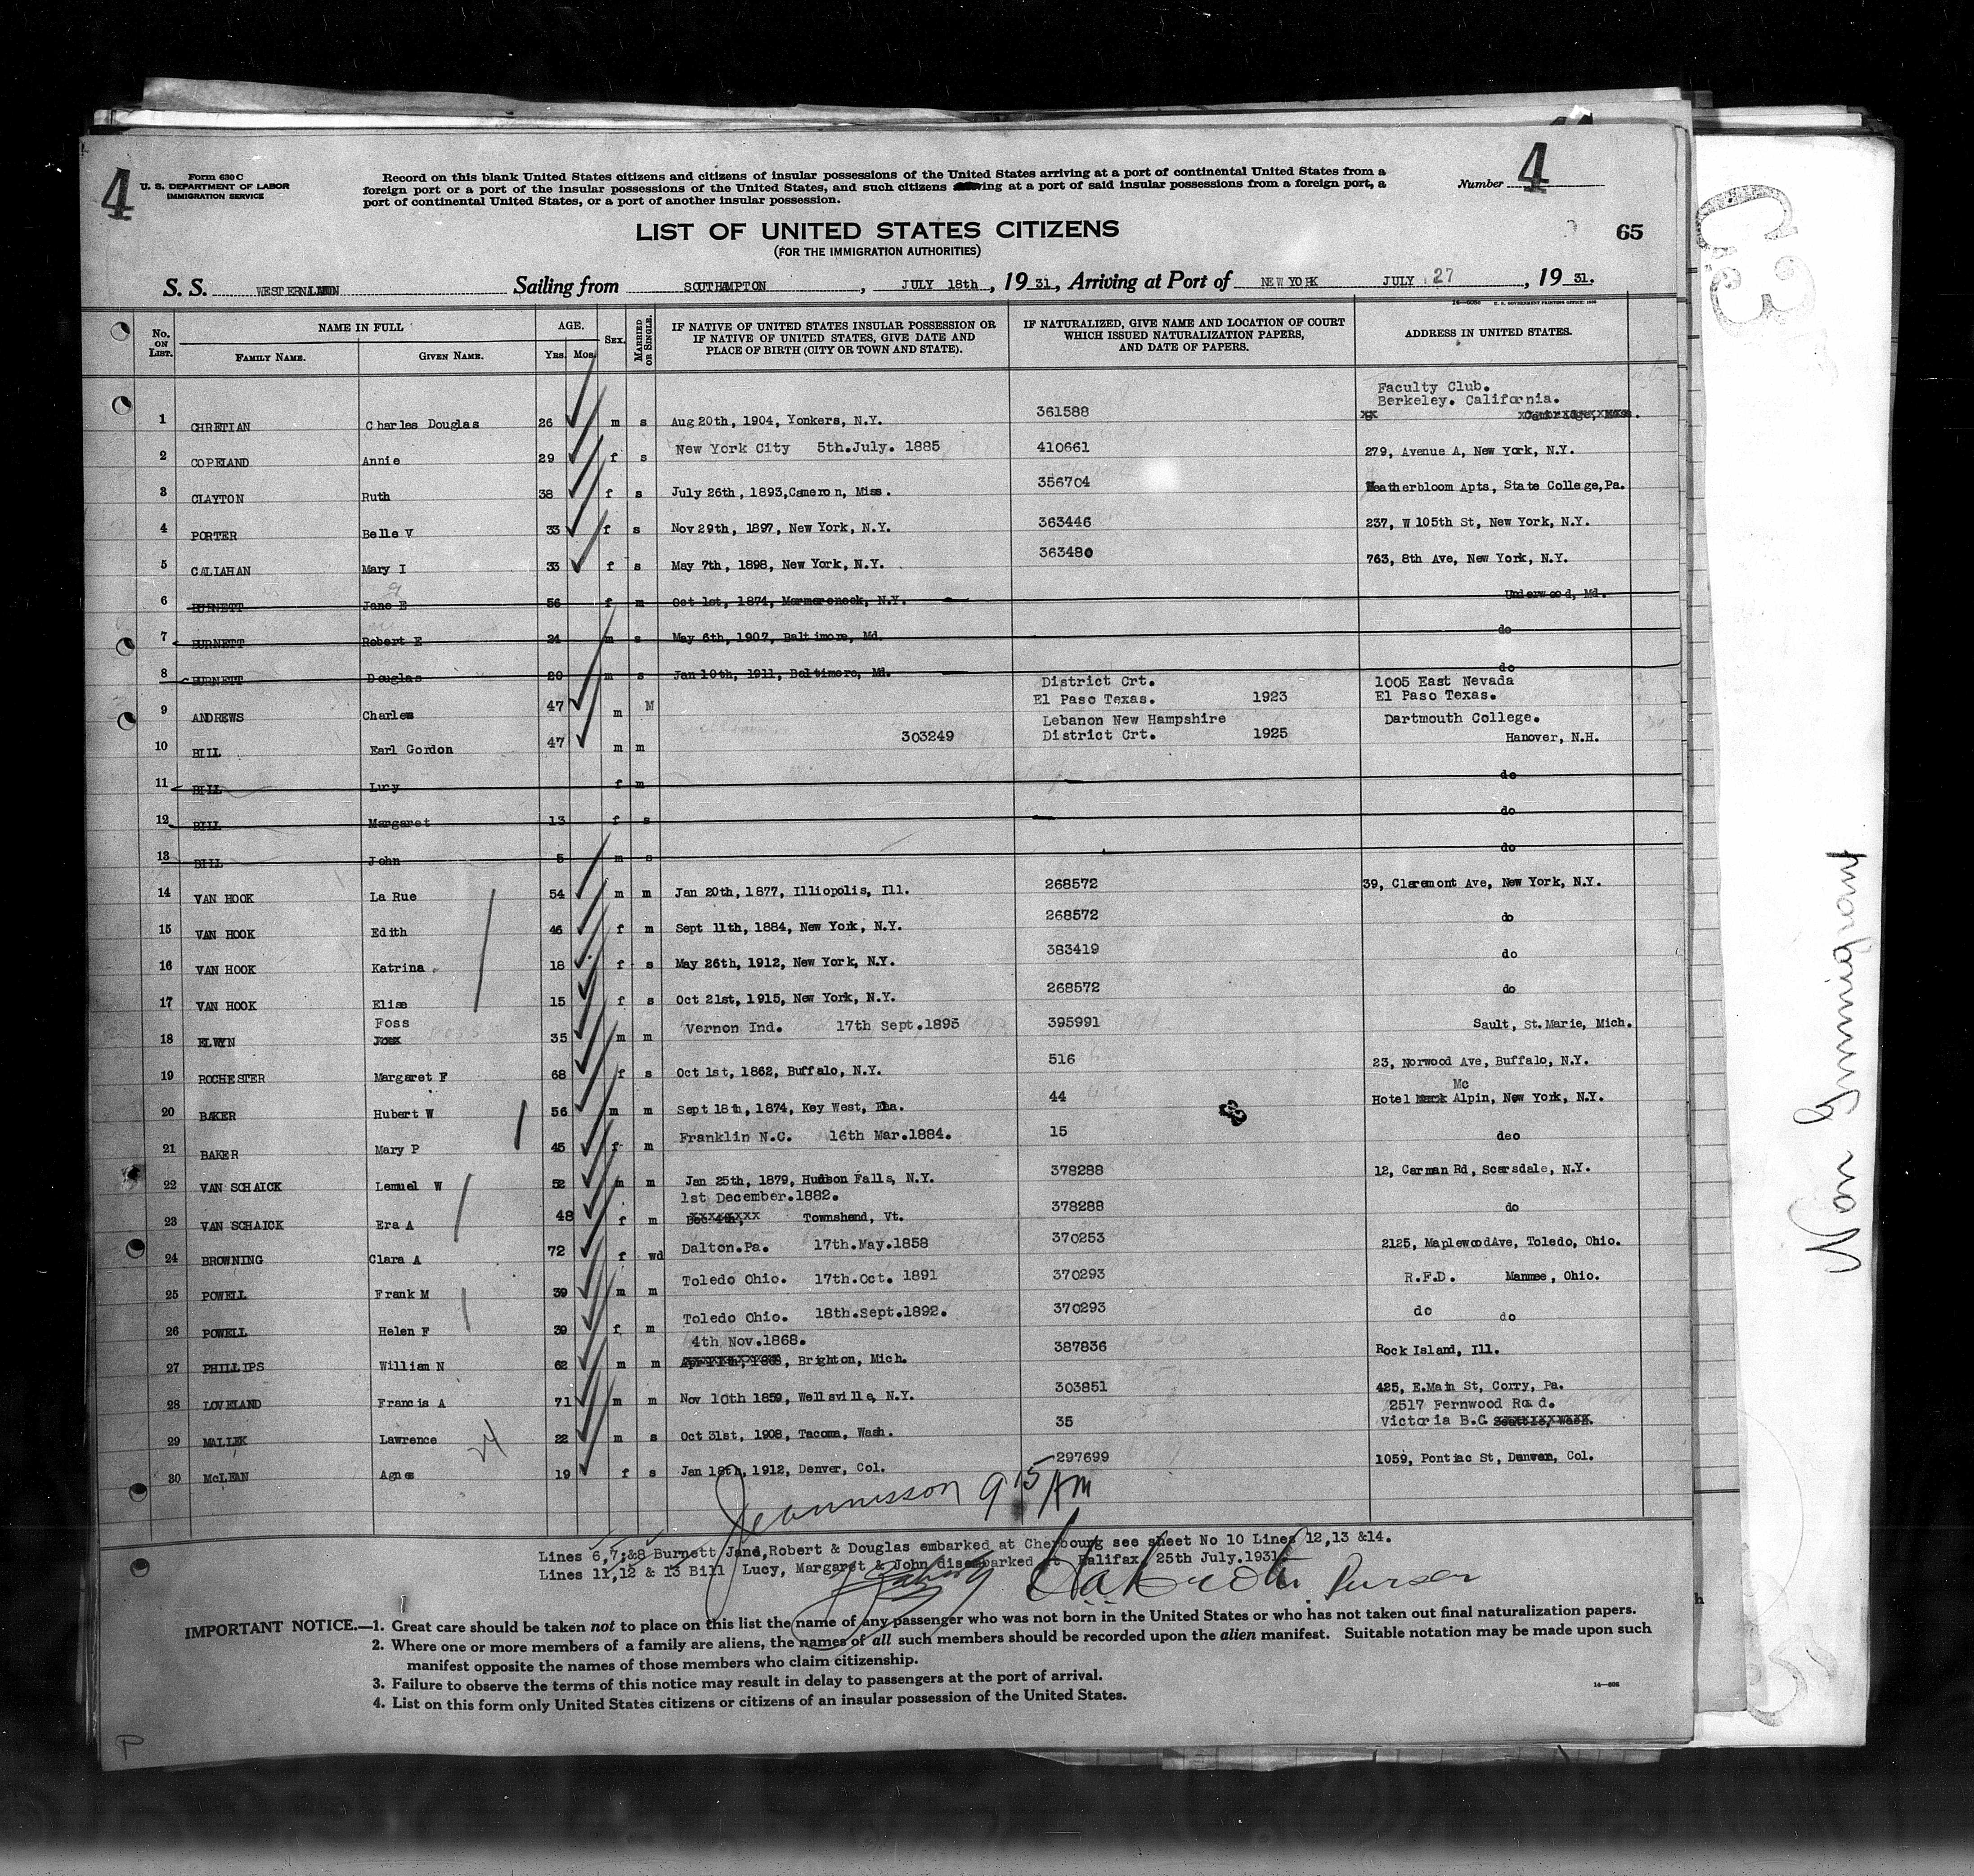 4
Form 630 C
U. S. DEPARTMENT OF LABOR
IMMIGRATION SERVICE
Record on this blank United States citizens and citizens of insular possessions of the United States arriving at a port of continental United States from a
foreign port or a port of the insular possessions of the United States, and such citizens arriving at a port of said insular possessions from a foreign port, a
port of continental United States, or a port of another insular possession.
Number 4
LIST OF UNITED STATES CITIZENS
(FOR THE IMMIGRATION AUTHORITIES)
65
S. S. WESTERNLAND Sailing from SOUTHAMPTON, JULY 18th, 19 31, Arriving at Port of NEW YORK JULY 27, 19 31.
No. ON LIST. NAME IN FULL FAMILY NAME. GIVEN NAME. AGE. Yrs. Mos. SEX. MARRIED OR SINGLE. IF NATIVE OF UNITED STATES INSULAR POSSESSION OR IF NATIVE OF UNITED STATES, GIVE DATE AND PLACE OF BIRTH (CITY OR TOWN AND STATE). IF NATURALIZED, GIVE NAME AND LOCATION OF COURT WHICH ISSUED NATURALIZATION PAPERS, AND DATE OF PAPERS. ADDRESS IN UNITED STATES.
Faculty Club.
Berkeley. California.
1 CHRETIAN Charles Douglas 26 m s Aug 20th, 1904, Yonkers, N.Y. 361588
2 COPELAND Annie 29 f s New York City 5th.July. 1885 410661 279, Avenue A, New York, N.Y.
3 CLAYTON Ruth 38 f s July 26th, 1893, Cameron, Miss. 356704 Heatherbloom Apts, State College, Pa.
4 PORTER Belle V 33 f s Nov 29th, 1897, New York, N.Y. 363446 237, W 105th St, New York, N.Y.
5 CALLAHAN Mary I 33 f s May 7th, 1898, New York, N.Y. 363480 763, 8th Ave, New York, N.Y.
6 BURNETT Jane E 56 f m Oct 1st, 1874, Mamaroneck, N.Y. Underwood, Md.
7 BURNETT Robert E 24 m s May 6th, 1907, Baltimore, Md. do
8 BURNETT Douglas 20 m s Jan 10th, 1911, Baltimore, Md. do
District Crt. 1005 East Nevada
9 ANDREWS Charles 47 m M El Paso Texas. 1923 El Paso Texas.
Lebanon New Hampshire Dartmouth College.
10 BILL Earl Gordon 47 m m 303249 District Crt. 1925 Hanover, N.H.
11 BILL Lucy f m do
12 BILL Margaret 13 f s do
13 BILL John 5 m s do
14 VAN HOOK La Rue 54 m m Jan 20th, 1877, Illiopolis, Ill. 268572 39, Claremont Ave, New York, N.Y.
15 VAN HOOK Edith 46 f m Sept 11th, 1884, New York, N.Y. 268572 do
16 VAN HOOK Katrina 18 f s May 26th, 1912, New York, N.Y. 383419 do
17 VAN HOOK Elise 15 f s Oct 21st, 1915, New York, N.Y. 268572 do
Foss
18 ELWYN 35 m m Vernon Ind. 17th Sept.1895 395991 Sault, St.Marie, Mich.
19 ROCHESTER Margaret F 68 f s Oct 1st, 1862, Buffalo, N.Y. 516 23, Norwood Ave, Buffalo, N.Y.
Mc
20 BAKER Hubert W 56 m m Sept 18th, 1874, Key West, Fla. 44 Hotel Alpin, New York, N.Y.
21 BAKER Mary P 45 f m Franklin N.C. 16th Mar.1884. 15 deo
22 VAN SCHAICK Lemuel W 52 m m Jan 25th, 1879, Hudson Falls, N.Y. 378288 12, Carman Rd, Scarsdale, N.Y.
1st December.1882.
23 VAN SCHAICK Era A 48 f m Townshend, Vt. 378288 do
24 BROWNING Clara A 72 f wd Dalton.Pa. 17th.May.1858 370253 2125, MaplewoodAve, Toledo, Ohio.
25 POWELL Frank M 39 m m Toledo Ohio. 17th.Oct. 1891 370293 R.F.D. Manmee, Ohio.
26 POWELL Helen F 39 f m Toledo Ohio. 18th.Sept.1892. 370293 do do
4th Nov.1868.
27 PHILLIPS William N 62 m m Brighton, Mich. 387836 Rock Island, Ill.
28 LOVELAND Francis A 71 m m Nov 10th 1859, Wellsville, N.Y. 303851 425, E.Main St, Corry, Pa.
2517 Fernwood Road.
29 MALLEK Lawrence 22 m s Oct 31st, 1908, Tacoma, Wash. 35 Victoria B.C.
30 McLEAN Agnes 19 f s Jan 18th, 1912, Denver, Col. 297699 1059, Pontiac St, Denver, Col.
9 15 AM
Lines 6,7;&8 Burnett Jane,Robert & Douglas embarked at Cherbourg see sheet No 10 Lines 12,13 &14.
Lines 11,12 & 13 Bill Lucy, Margaret & John disembarked at Halifax, 25th July.1931.
Purser
IMPORTANT NOTICE.—1. Great care should be taken not to place on this list the name of any passenger who was not born in the United States or who has not taken out final naturalization papers.
2. Where one or more members of a family are aliens, the names of all such members should be recorded upon the alien manifest. Suitable notation may be made upon such
manifest opposite the names of those members who claim citizenship.
3. Failure to observe the terms of this notice may result in delay to passengers at the port of arrival.
4. List on this form only United States citizens or citizens of an insular possession of the United States.
P
Non Immigrant